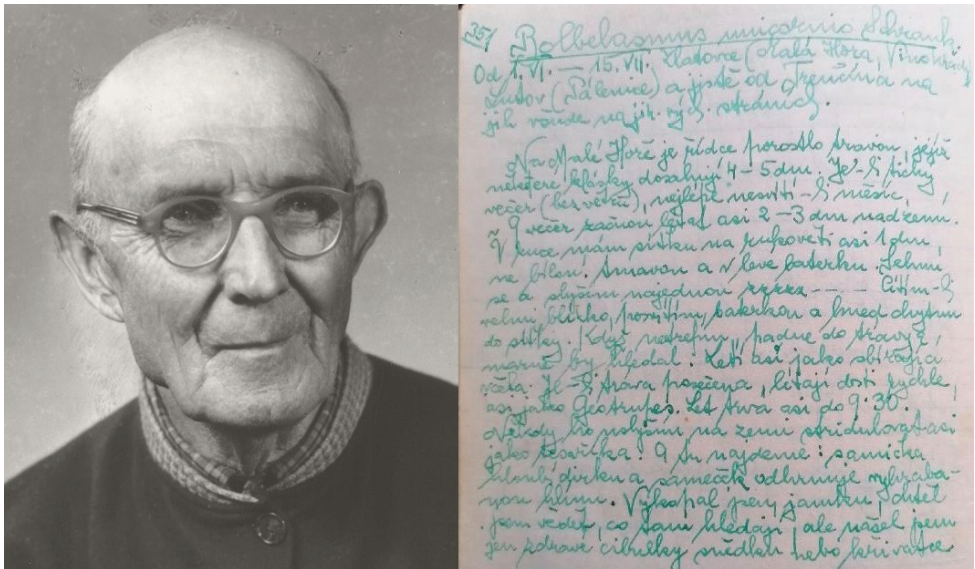 35/ Bolbelasmus unicornis Schrank.
Od 1. VI. — 15. VII. Zlatovce (Malá Hora, Vinohrady)
Lutov (Pálenice) a jistě od Trenčína na
jih všude na jih. vých. stráních.
Na Malé Hoře je řídce porostlo travou, jejíž
některé klásky dosahují 4–5 dm. Je-li tichý
večer (bezvětrný), nejlépe nesvítí-li měsíc,
9 večer začnou létat asi 2–3 dm nad zemí.
V ruce mám síťku na rukověti asi 1 dm,
ne bílou, tmavou a v levé baterku. Lehnu
se a slyším najednou rzrzz — — — Cítím-li
velmi blízko, posvítím, baterkou a hned chytnu
do síťky. Když netrefím, padne do trávy a
marně by hledal. Letí asi jako sbírající
včela. Je-li tráva posečena, lítají dosti rychle,
asi jako Geotrupes. Let trvá asi do 9·30.
Někdy ho uslyším na zemi stridulovat asi
jako tesaříka. A tu najdeme: samička
hlubí dírku a sameček odhrnuje vyhrabanou
hlínu. Vykopal jsem jamku, chtěl
jsem vědět, co tam hledají, ale našel jsem
jen zdravé cibulky snědku nebo křivatce